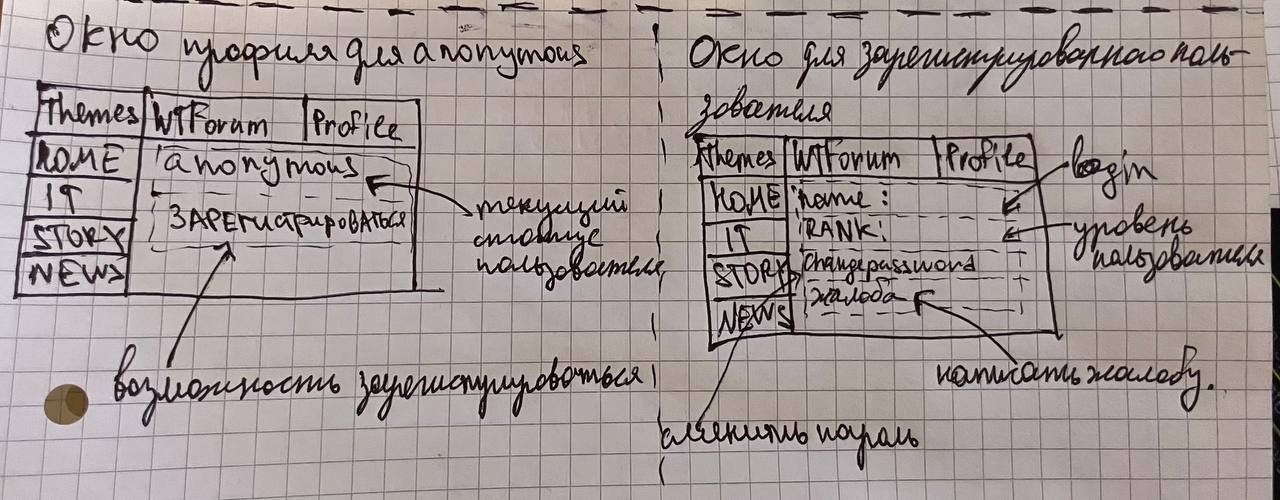 Окно профиля для anonymous
Themes WTForum Profile
HOME anonymous
IT
ЗАРЕГИСТРИРОВАТЬСЯ
STORY
NEWS
текущий
статус
пользователя
возможность зарегистрироваться
Окно для зарегистрированного поль-
зователя
Themes WTForum Profile
HOME name :
IT RANK:
STORY Changepassword
NEWS жалоба
login
уровень
пользователя
написать жалобу.
сменить пароль